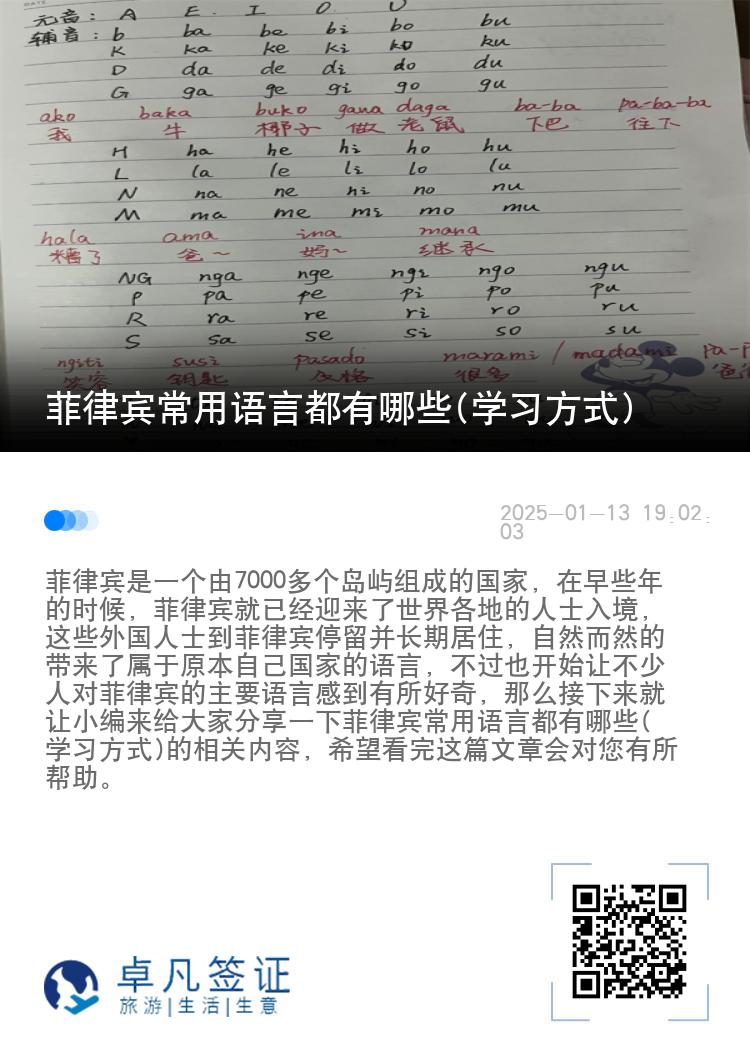 元音: A E. I O. U
辅音: b ba be bi bo bu
K ka ke ki ko ku
D da de di do du
G ga ge gi go gu
ako baka buko gana daga ba-ba pa-ba-ba
我 牛 椰子 做 老鼠 下巴 往下
H ha he hi ho hu
L la le li lo lu
N na ne ni no nu
M ma me mi mo mu
hala ama ina mana
糟了 爸~ 妈~ 继承
NG nga nge ngi ngo ngu
P pa pe pi po pu
R ra re ri ro ru
S sa se si so su
ngiti susi pasado marami / madami
笑容 钥匙 及格 很多
菲律宾常用语言都有哪些(学习方式)
2025-01-13 19:02:
03
菲律宾是一个由7000多个岛屿组成的国家，在早些年
的时候，菲律宾就已经迎来了世界各地的人士入境，
这些外国人士到菲律宾停留并长期居住，自然而然的
带来了属于原本自己国家的语言，不过也开始让不少
人对菲律宾的主要语言感到有所好奇，那么接下来就
让小编来给大家分享一下菲律宾常用语言都有哪些(
学习方式)的相关内容，希望看完这篇文章会对您有所
帮助。
卓凡签证
旅游|生活|生意